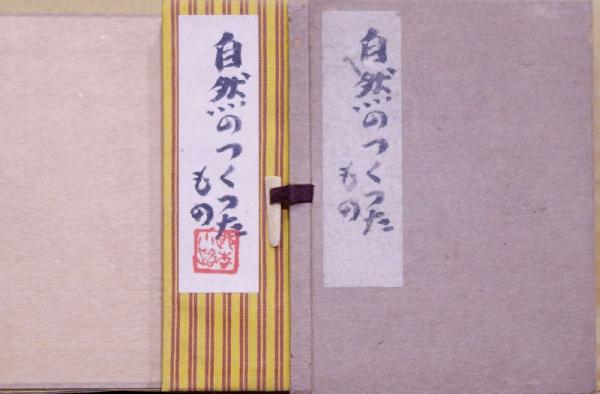 自然のつくった
もの
自然のつくった
もの